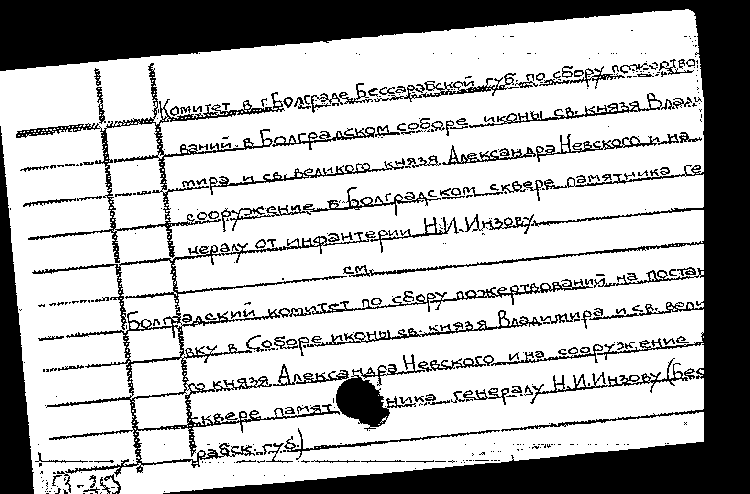 Комитет в г. Болграде Бессарабской губ. по сбору пожертво
ваний в Болградском соборе иконы св. князя Влади
мира и св. великого князя Александра Невского и на
сооружение в Болградском сквере памятника ге
нералу от инфантерии Н.И. Инзову
см.
Болградский комитет по сбору пожертвований на постан
вку в Соборе иконы св. князя Владимира и св. вели
го князя Александра Невского и на сооружение
сквере памят ника генералу Н.И. Инзову (Бес
рабск. губ)
153-255